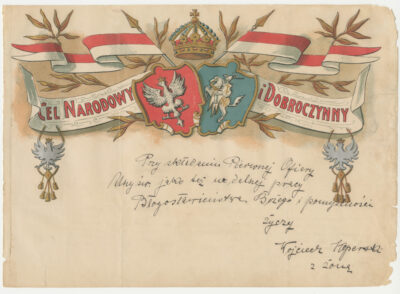 CEL NARODOWY
I DOBROCZYNNY
Przy składaniu Pierwszej Ofiary
jako też na dalszej pracy
Błogosławieństwa Bożego i pomyślności
życzy
Wojciech
z żoną